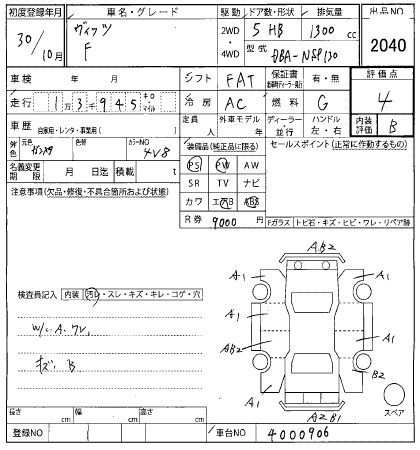 初度登録年月 車名・グレード 駆動 ドア数・形状 排気量 出品NO
30/10月 ヴィッツ F 2WD・4WD 5 HB 1300 cc 2040
型式 DBA-NSP130
車検 年 月 シフト FAT 保証書 有・無 評価点
走行 1万3千945キロ・マイル 冷房 AC 燃料 G 4
車歴 自家用・レンタ・事業用( ) 定員 人 外車モデル 年 ディーラー・並行 ハンドル 左・右 内装評価 B
外色 元色 色替 カラーNO 4V8 装備品(純正品に限る) セールスポイント(正常に作動するもの)
PS PW AW
名義変更期限 月 日迄 積載 t SR TV ナビ
注意事項(欠品・修復・不具合箇所および状態) カワ エアB ABS
R券 9000 Fガラス トビ石・キズ・ヒビ・ワレ・リペア跡
AB2
A1 A1
検査員記入 内装 汚レ・スレ・キズ・キレ・コゲ・穴
A1 A1
AB2 A1
キズ B B2
A1
スペア
A2B1
長さ cm 幅 cm 高さ cm
登録NO 車台NO 4000906